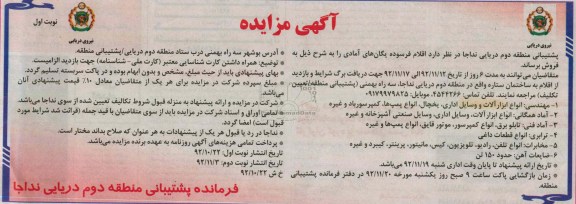 آگهی مزایده
نوبت اول
نیروی دریایی
نیروی دریایی
پشتیبانی منطقه دوم دریایی نداجا در نظر دارد اقلام فرسوده یگان‌های آمادی را به شرح ذیل به فروش برساند.
متقاضیان می‌توانند به مدت ۶ روز از تاریخ ۹۲/۱۱/۱۲ الی ۹۲/۱۱/۱۷ جهت دریافت برگ شرایط و بازدید از اقلام به ساختمان ستاره واقع در منطقه دوم دریایی نداجا، سه راه بهمنی (پشتیبانی منطقه/کمیسیون تکلیف) مراجعه نمایند. تلفن تماس:
۱- مهندسی: انواع ابزار آلات و وسایل اداری، یخچال، انواع پمپ‌ها، کمپرسورباد و غیره
۲- آماد همگانی: انواع ابزار آلات، وسایل اداری، وسایل صنعتی آشپزخانه و غیره
۳- آماد فنی: تابلو برق، انواع کمپرسور، موتور قایق، انواع پمپ‌ها و غیره
۴- ترابری: انواع قطعات داغی
۵- مخابرات: انواع تلفن، رادیو، تلویزیون، کیس، مانیتور، پرینتر، کیبرد و غیره
۶- ضایعات آهن: حدود ۱۵۰ تن
* تاریخ ارائه پیشنهاد تا پایان وقت اداری شنبه ۹۲/۱۱/۱۹ می‌باشد.
* زمان بازگشایی پاکت ساعت ۹ صبح روز یکشنبه مورخه ۹۲/۱۱/۲۰ در دفتر فرمانده پشتیبانی منطقه.
* آدرس بوشهر سه راه بهمنی درب ستاد منطقه دوم دریایی/پشتیبانی منطقه.
* توضیح: همراه داشتن کارت شناسایی معتبر (کارت ملی - شناسنامه) جهت بازدید الزامیست.
* بهای پیشنهادی باید از حیث مبلغ، مشخص و بدون ابهام بوده و در پاکت سربسته تسلیم گردد.
* مبلغ سپرده شرکت در مزایده برای هر یک از متقاضیان معادل ۱۰٪ قیمت پیشنهادی آنان می‌باشد.
* شرکت در مزایده و ارائه پیشنهاد به منزله قبول شروط تکالیف تعیین شده از سوی نداجا می‌باشد.
* تمامی اوراق و اسناد شرکت در مزایده باید از سوی متقاضیان با قید جمله (قرائت شد شرایط مورد قبول است) امضا گردد.
* نداجا در رد یا قبول هر یک از پیشنهادات به هر عنوان که صلاح بداند مختار است.
* پرداخت تمامی هزینه‌های آگهی روزنامه به عهده برنده مزایده می‌باشد.
تاریخ انتشار نوبت اول:
تاریخ انتشار نوبت دوم: ۹۲/۱۱/۳
خ ش
فرمانده پشتیبانی منطقه دوم دریایی نداجا